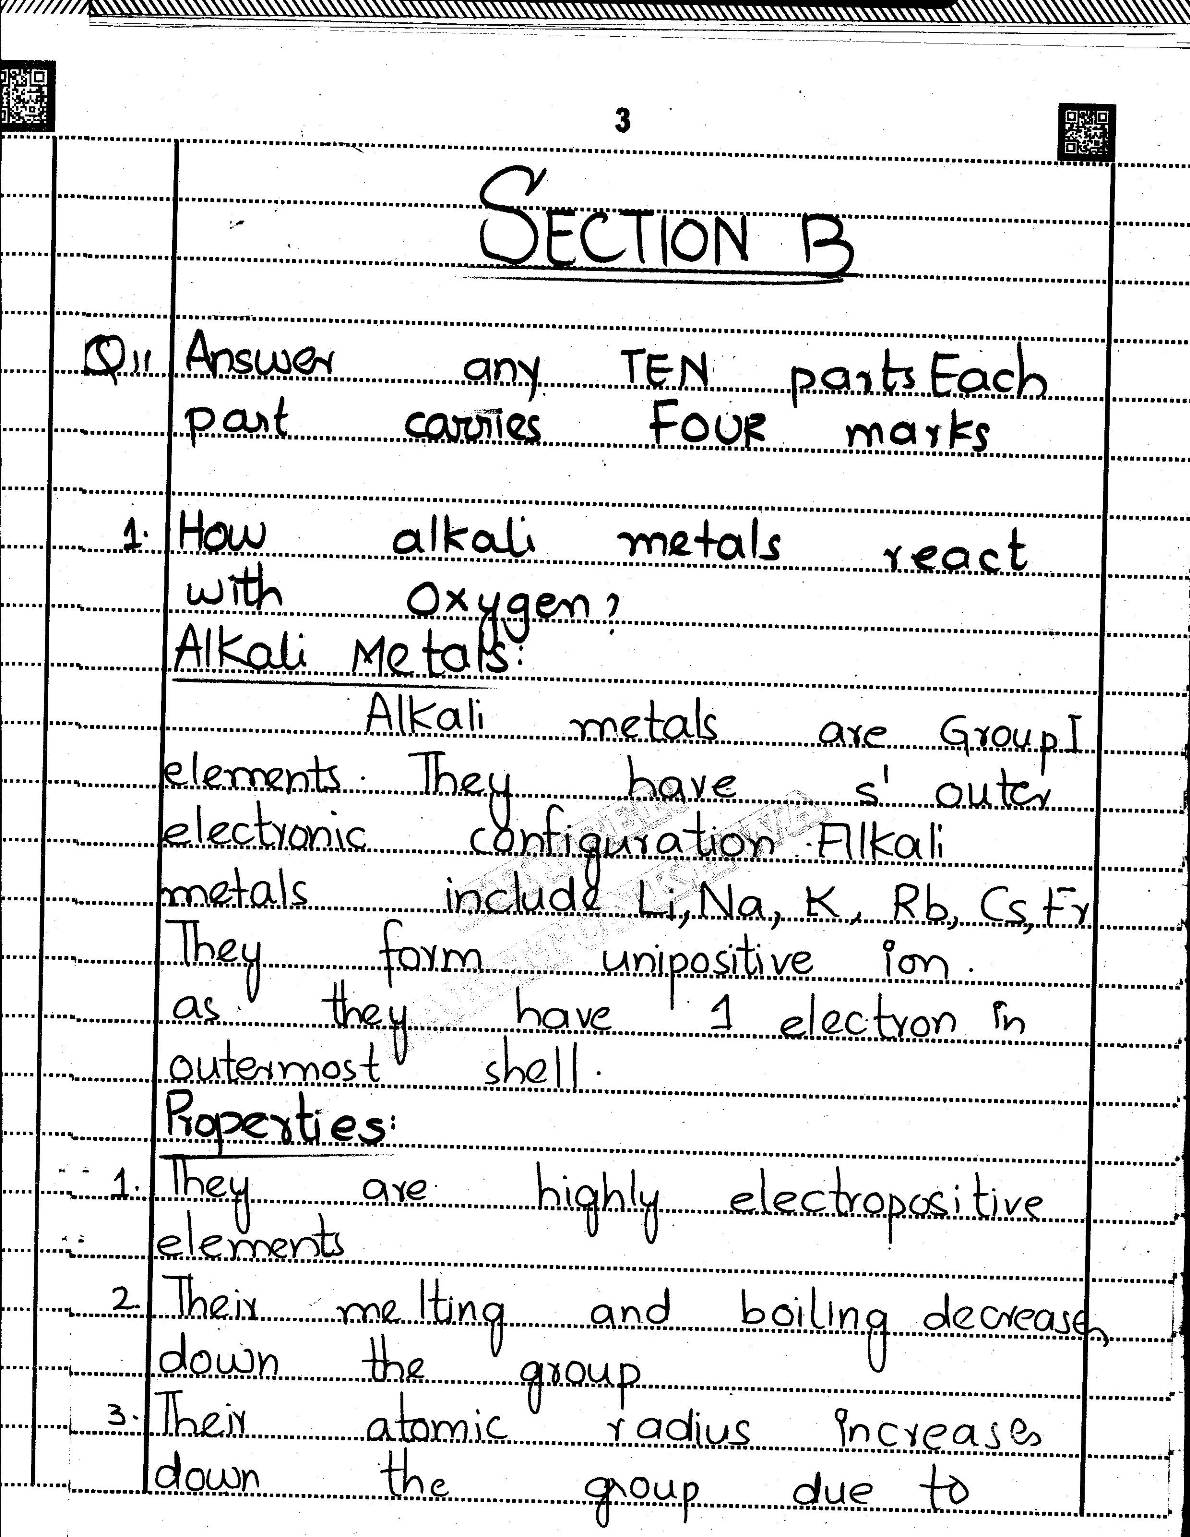 3
SECTION B
Q11 Answer any TEN parts Each
part carries FOUR marks
1. How alkali metals react
with Oxygen?
Alkali Metals:
Alkali metals are Group I
elements. They have s' outer
electronic configuration. Alkali
metals include Li, Na, K, Rb, Cs, Fr
They form unipositive ion.
as they have 1 electron in
outermost shell.
Properties:
1. They are highly electropositive
elements
2. Their melting and boiling decreases
down the group
3. Their atomic radius increases
down the group due to